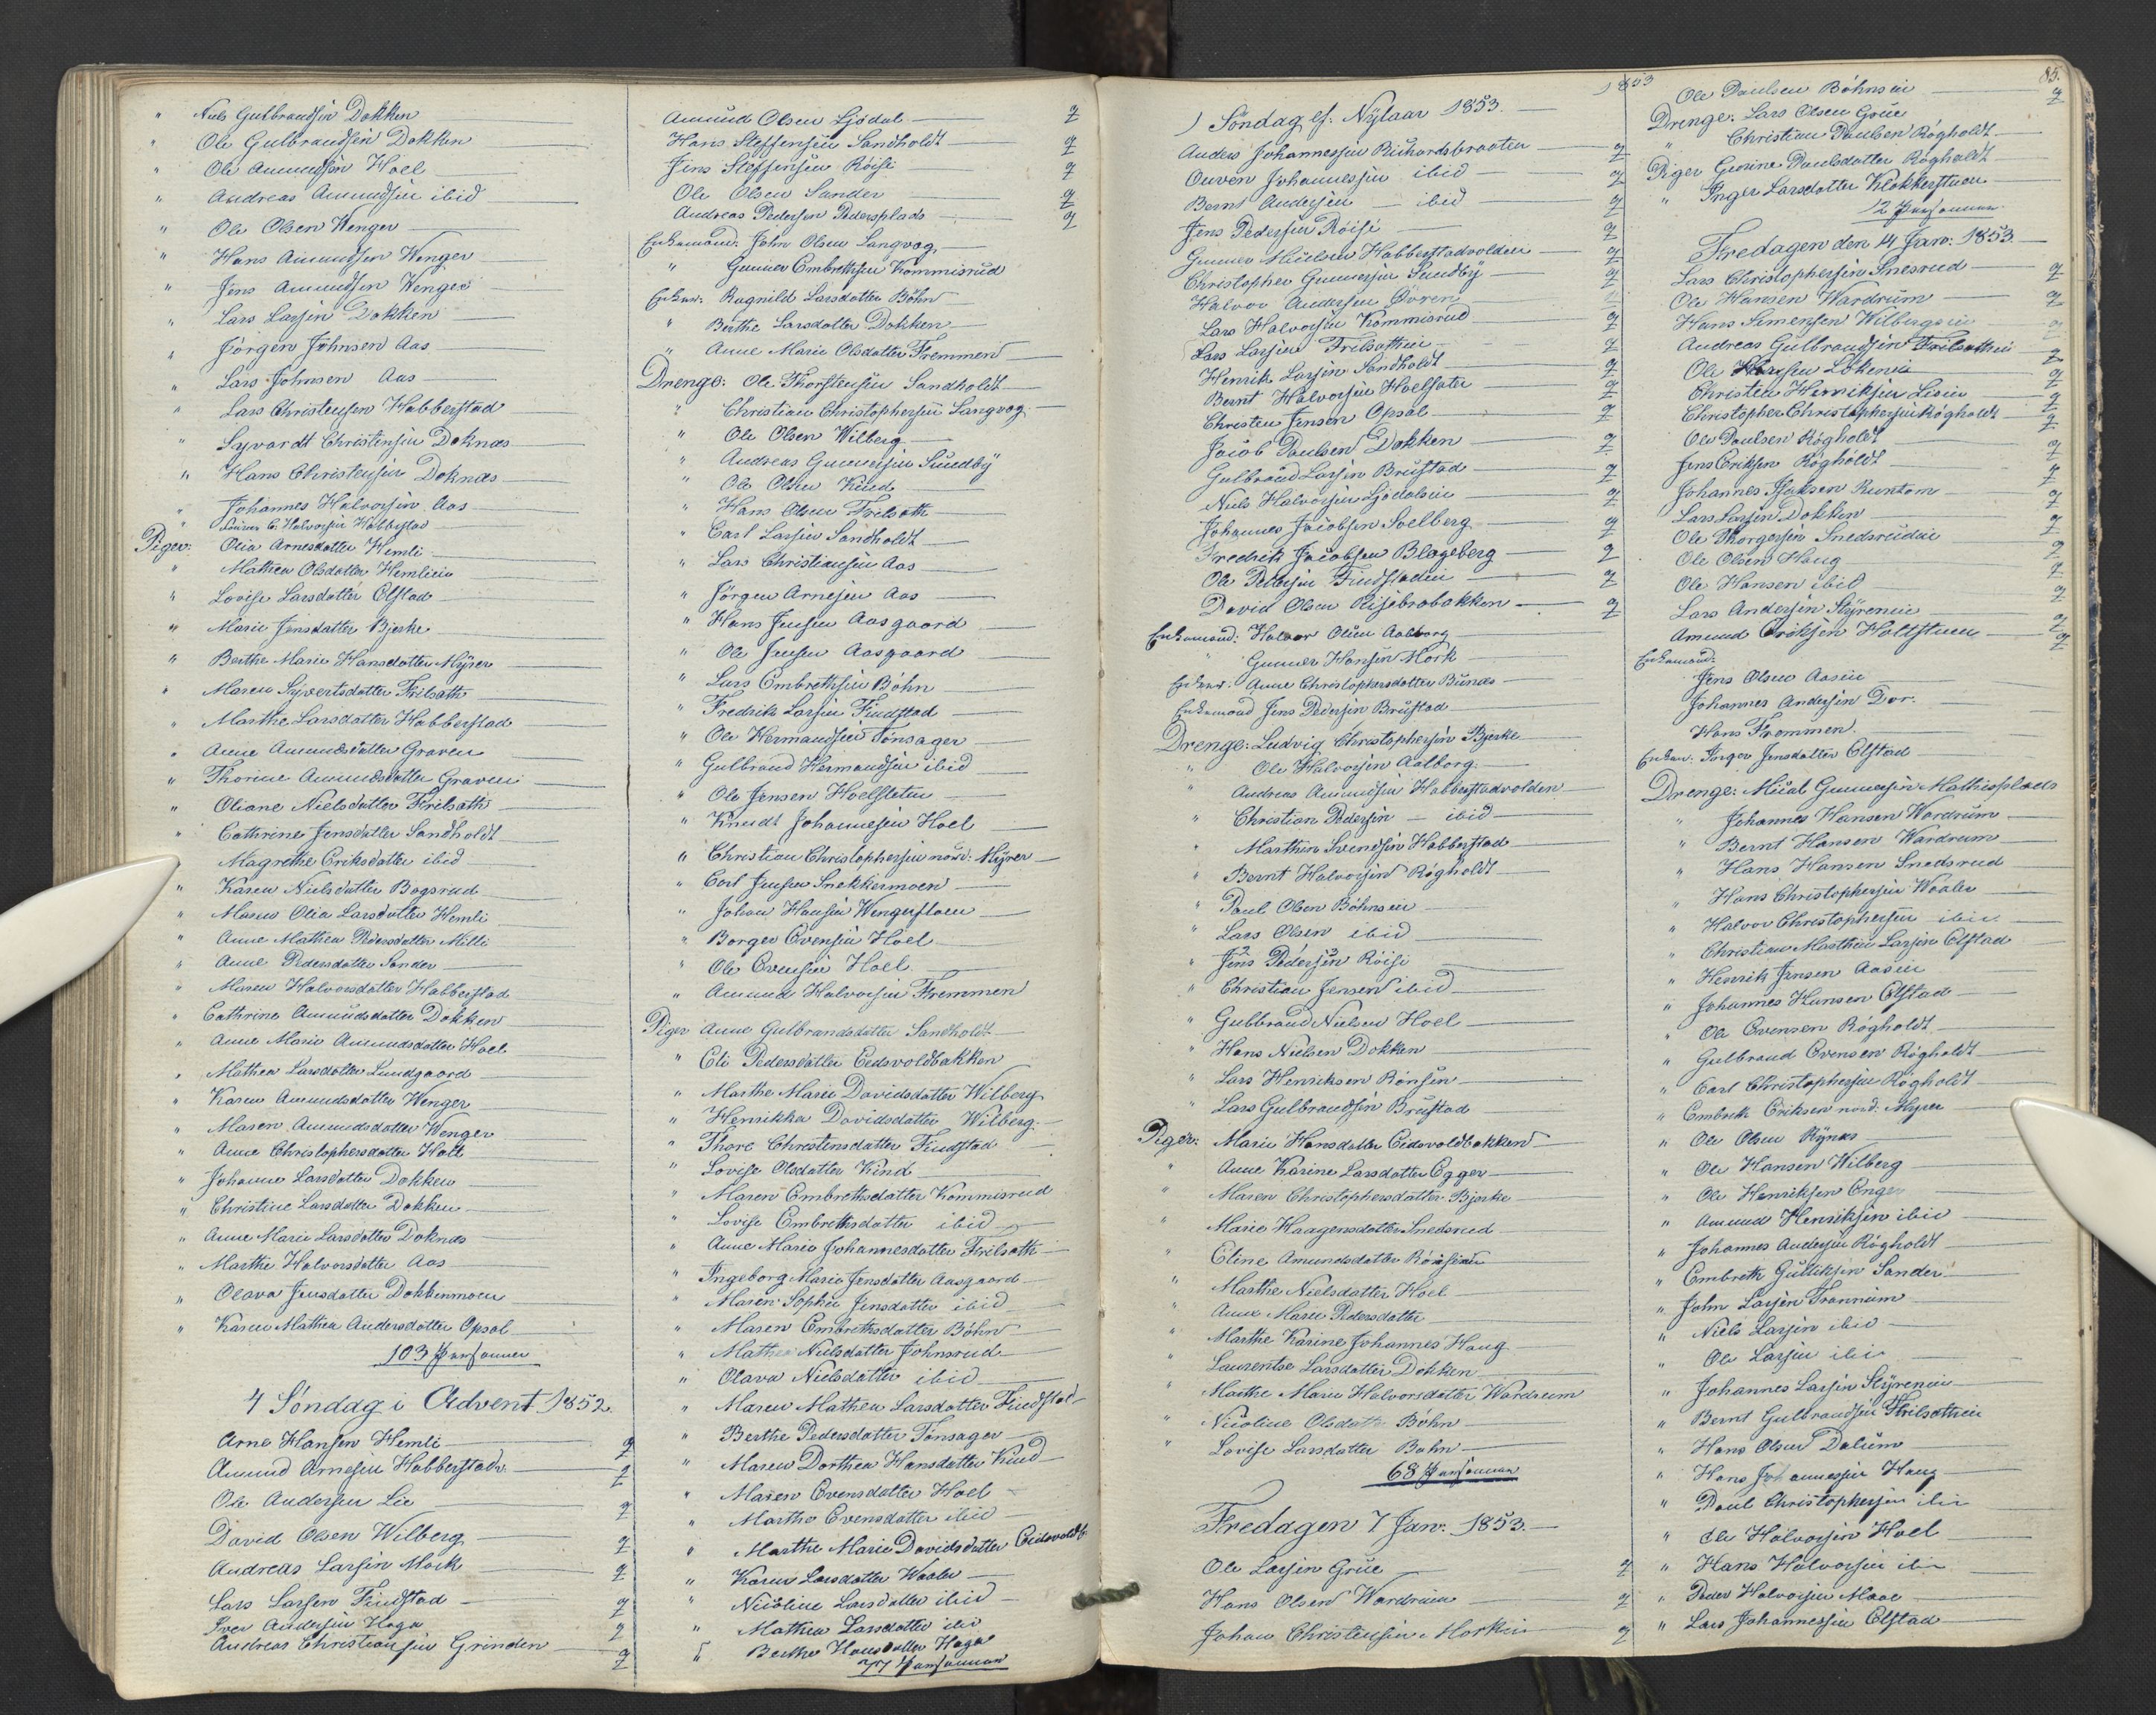 " Niels Gulbrandsen Dokken
" Ole Gulbrandsen Dokken
" Ole Amundsen Hoel
" Andreas Amundsen ibid
" Ole Olsen Wenger
" Hans Amundsen Wenger
" Jens Amundsen Wenger
" Lars Larsen Dokken
" Jörgen Johnsen Aas
" Lars Johnsen Aas
" Lars Christensen Habberstad
" Syvardt Christensen Doknæs
" Hans Christensen Doknæs
" Johannes Halvorsen Aas
" C. Halvorsen Habberstad
Piger: Olia Arnesdatter Hemli
" Mathea Olsdatter Hemlien
" Lovise Larsdatter Olstad
" Marie Jensdatter Bjerke
" Berthe Marie Hansdatter Myrer
" Maren Syvertsdatter Frilseth
" Marthe Larsdatter Habberstad
" Anne Amundsdatter Graven
" Thorine Amundsdatter Graven
" Oliane Nielsdatter Frilseth
" Cathrine Jensdatter Sandholdt
" Magrethe Eriksdatter ibid
" Karen Nielsdatter Bogsrud
" Maren Olia Larsdatter Hemli
" Anne Mathea Pedersdatter Milli
" Anne Pedersdatter Sander
" Maren Halvorsdatter Habberstad
" Cathrine Amundsdatter Dokken
" Anne Marie Amundsdatter Hoel
" Mathea Larsdatter Lundgaard
" Karen Amundsdatter Wenger
" Maren Amundsdatter Wenger
" Anne Christophersdatter Holt
" Johanne Larsdatter Dokken
" Christine Larsdatter Dokken
" Anne Marie Larsdatter Doknæs
" Marthe Halvorsdatter Aas
" Olava Jensdatter Dokkenmoen
" Karen Mathea Andersdatter Opsal
103 Personer
4 Söndag i Advent 1852.
Arne Hansen Hemli 2
Amund Arnesen Habberstadv. 2
Ole Andersen Lie 2
David Olsen Wilberg 2
Andreas Larsen Mork 2
Lars Larsen Findstad 2
Iver Andersen Haga 2
Andreas Christiansen Grinden 2
Amund Olsen Ljödal 2
Hans Steffensen Sandholdt 2
Jens Steffensen Röise 2
Ole Olsen Sander 2
Andreas Pedersen Pedersplads 2
Enkemænd: John Olsen Langvag
" Gunner Embrethsen Kommisrud
Enker: Ragnild Larsdatter Böhn
" Berthe Larsdatter Dokken
" Anne Marie Olsdatter Fremmen
Drenge: Ole Thorstensen Sandholdt
" Christian Christophersen Langvag
" Ole Olsen Wilberg
" Andreas Gunnersen Sundby
" Ole Olsen Kind
" Hans Olsen Frilseth
" Carl Larsen Sandholdt
" Lars Christiansen Aas
" Jörgen Arnesen Aas
" Hans Jensen Aasgaard
" Ole Jensen Aasgaard
" Lars Embrethsen Böhn
" Fredrik Larsen Findstad
" Ole Hermandsen Tönsager
" Gulbrand Hermandsen ibid
" Ole Jensen Hoelsleten
" Knudt Johannesen Hoel
" Christian Christophersen nord: Myrer
" Carl Jensen Snekkermoen
" Johan Hansen Wengerstoen
" Borger Evensen Hoel
" Ole Evensen Hoel
" Amund Halvorsen Fremmen
Piger Anne Gulbrandsdatter Sandholdt
" Eli Pedersdatter Eidsvoldbakken
" Marthe Marie Davidsdatter Wilberg
" Henrikka Davidsdatter Wilberg
" Thore Christensdatter Findstad
" Lovise Olsdatter Kind
" Maren Embrethsdatter Kommisrud
" Lovise Embrethsdatter ibid
" Anne Marie Johannesdatter Frilseth
" Ingeborg Marie Jensdatter Aasgaard
" Maren Sophie Jensdatter ibid
" Maren Embrethsdatter Böhn
" Mathea Nielsdatter Johnsrud
" Olava Nielsdatter ibid
" Maren Mathea Larsdatter Findstad
" Berthe Pedersdatter Tönsager
" Maren Dorthea Hansdatter Kind
" Maren Evensdatter Hoel
" Marthe Evensdatter ibid
" Marthe Marie Davidsdatter Eidsvoldb.
" Karen Larsdatter Waaler
" Nicoline Larsdatter ibid
" Mathea Larsdatter ibid
" Berthe Hansdatter Haga
77 Personer
1853
) Söndag ef. Nytaar 1853.
Anders Johannessen Rikardsbraaten 2
Ouven Johannessen ibid 2
Bernt Andersen ibid 2
Jens Pedersen Röise 2
Gunner Nielsen Habberstadvolden 2
Christopher Gunnersen Sundby 2
Halvor Andersen Dören 2
Lars Halvorsen Kommisrud 2
Lars Larsen Frilsethen 2
Henrik Larsen Sandholdt 2
Bernt Halvorsen Hoelsæter 2
Christen Jensen Opsal 2
Jacob Paulsen Dokken 2
Gulbrand Larsen Brustad 2
Niels Halvorsen Ljödalsen 2
Johannes Jacobsen Soelberg 2
Fredrik Jacobsen Blegeberg 2
Ole Pedersen Findstaden 2
David Olsen Risebrobakken 2
Enkemænd: Halvor Olsen Aalborg
" Gunner Hansen Mork
Enker: Anne Christophersdatter Bunæs
Enkemand Jens Pedersen Brustad
Drenge: Ludvig Christophersen Bjerke
" Ole Halvorsen Aalborg
" Andreas Amundsen Habberstadvolden
" Christian Pedersen ibid
" Marthin Svendsen Habberstad
" Bernt Halvorsen Rögholdt
" Paul Olsen Böhnseie
" Lars Olsen ibid
" Jens Pedersen Röise
" Christian Jensen ibid
" Gulbrand Nielsen Hoel
" Hans Nielsen Dokken
" Lars Henriksen Rönsen
" Lars Gulbrandsen Brustad
Piger: Marie Hansdatter Eidsvoldbakken
" Anne Karine Larsdatter Egger
" Maren Christophersdatter Bjerke
" Marie Haagensdatter Snedsrud
" Eline Amundsdatter
" Marthe Nielsdatter Hoel
" Anne Marie Pedersdatter
" Marthe Karine Johannes Haug
" Laurentse Larsdatter Dokken
" Marthe Marie Halvorsdatter Wardrum
" Nicoline Olsdatter Böhn
" Lovise Larsdatter Bøhn
68 Personer
Fredagen 7 Jan: 1853.
Ole Larsen Grüe 2
Hans Olsen Wardrum 2
Johan Christensen Morken 2
85.
Ole Paulsen Böhnseie 2
Drenge: Lars Olsen Grüe
" Christian Paulsen Rögholdt
Piger Gunine Paulsdatter Rögholdt
" Inger Larsdatter Klokkerstuen
12 Personer
Fredagen den 14 Jan: 1853.
Lars Christophersen Snesrud 2
Ole Hansen Wardrum 2
Hans Simensen Wilbergseie 2
Andreas Gulbrandsen Frilsethen 2
Ole Lökeneie 2
Christen Henriksen Lieeie 2
Christopher Christophersen Rögholdt 2
Ole Paulsen Rögholdt 2
Jens Eriksen Rögholdt 2
Johannes Isaksen Runtom 2
Lars Larsen Dokken 2
Ole Thorgersen Snedsrudeie 2
Ole Olsen Haug 2
Ole Hansen ibid 2
Lars Andersen Styreneie 2
Amund Eriksen Holtstuen 2
Enkemænd:
Jens Olsen Aaseie
Johannes Andersen Dor.
Hans Frommen
Enker: Inger Jensdatter Olstad
Drenge: Micael Gunnersen Mathisplads
" Johannes Hansen Wardrum
" Bernt Hansen Wardrum
" Hans Hansen Snedsrud
" Hans Christophersen Waaler
" Halvor Christophersen ibid
" Christian Marthin Larsen Olstad
" Henrik Jensen Aaseie
" Johannes Hansen Olstad
" Ole Evensen Rögholdt
" Gulbrand Evensen Rögholdt
" Carl Christophersen Rögholdt
" Embrik Eriksen nord: Myrer
" Ole Olsen Rynæs
" Ole Hansen Wilberg
" Ole Henriksen Enger
" Amund Henriksen ibid
" Johannes Andersen Rögholdt
" Embreth Gulliksen Sander
" John Larsen Trannum
" Niels Larsen ibid
" Ole Larsen ibid
" Johannes Larsen Styreneie
" Bernt Gulbrandsen Frilsethen
" Hans Olsen Dalum
" Hans Johannessen Haug
" Paul Christophersen ibid
" Ole Halvorsen Hoel
" Hans Halvorsen ibid
" Peder Halvorsen Moae
" Lars Johannessen Olstad